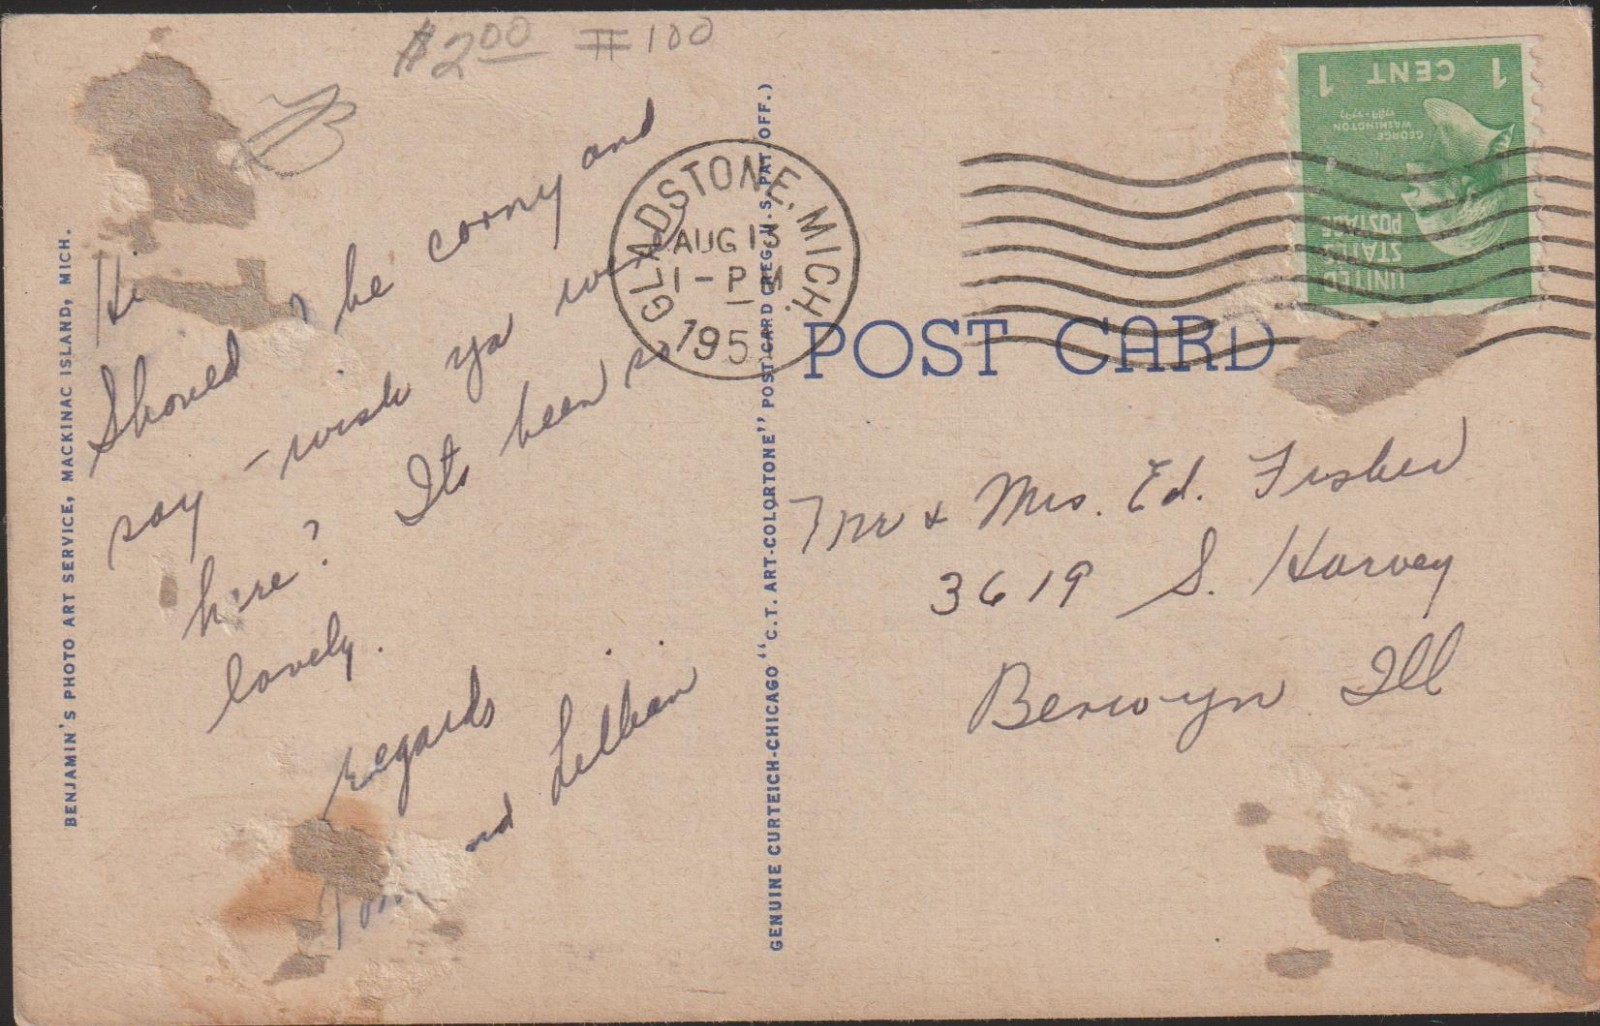 $2.00 #100
Hi
Should I be corny and
say - wish ya were
here? Its been so
lovely.
regards
Tom and Lillian
BENJAMIN'S PHOTO ART SERVICE, MACKINAC ISLAND, MICH.
GENUINE CURTEICH-CHICAGO "C.T. ART-COLORTONE" POST CARD (REG. U.S. PAT. OFF.)
GLADSTONE, MICH.
AUG
1 - PM
195
1 CENT 1
GEORGE
WASHINGTON
1789-1797
UNITED
STATES
POSTAGE
POST CARD
Mr & Mrs. Ed. Fisher
3619 S. Harvey
Berwyn Ill